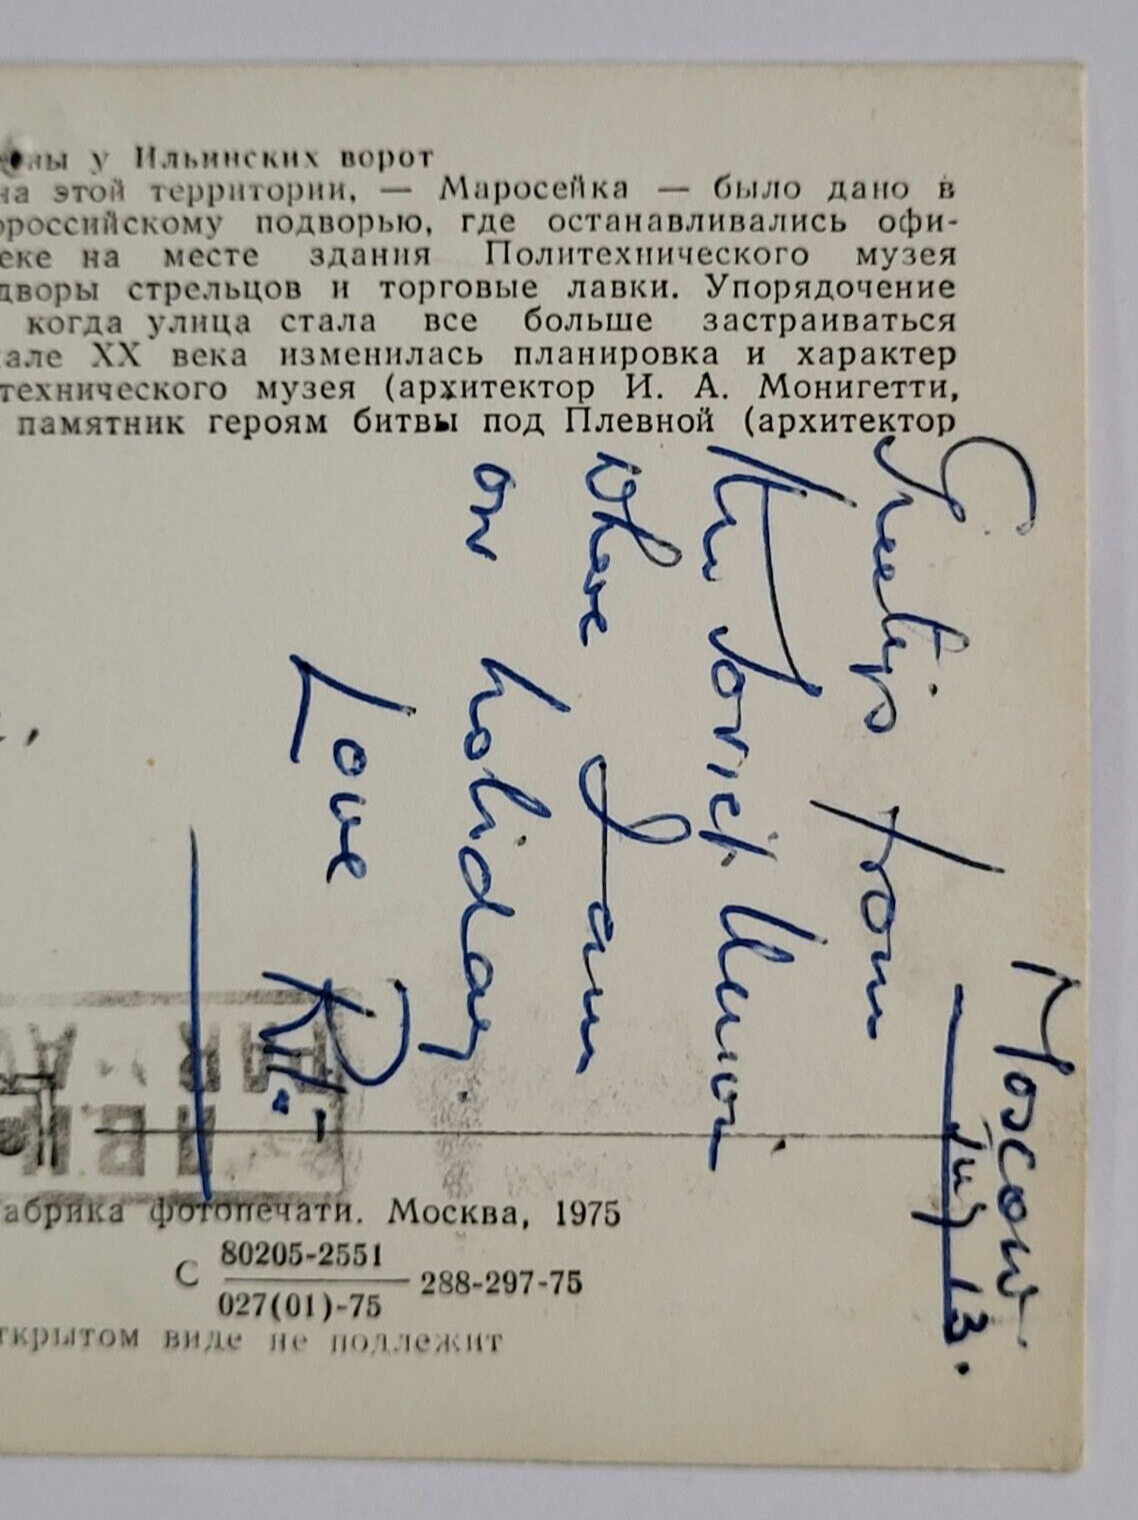 ны у Ильинских ворот
на этой территории, — Маросейка — было дано в
ороссийскому подворью, где останавливались офи-
еке на месте здания Политехнического музея
дворы стрельцов и торговые лавки. Упорядочение
когда улица стала все больше застраиваться
але XX века изменилась планировка и характер
технического музея (архитектор И. А. Монигетти,
памятник героям битвы под Плевной (архитектор
Moscow
July 13.
Greetings from
the Soviet Union
where I am
on holiday.
Love
абрика фотопечати. Москва, 1975
С 80205-2551 288-297-75
027(01)-75
ткрытом виде не подлежит